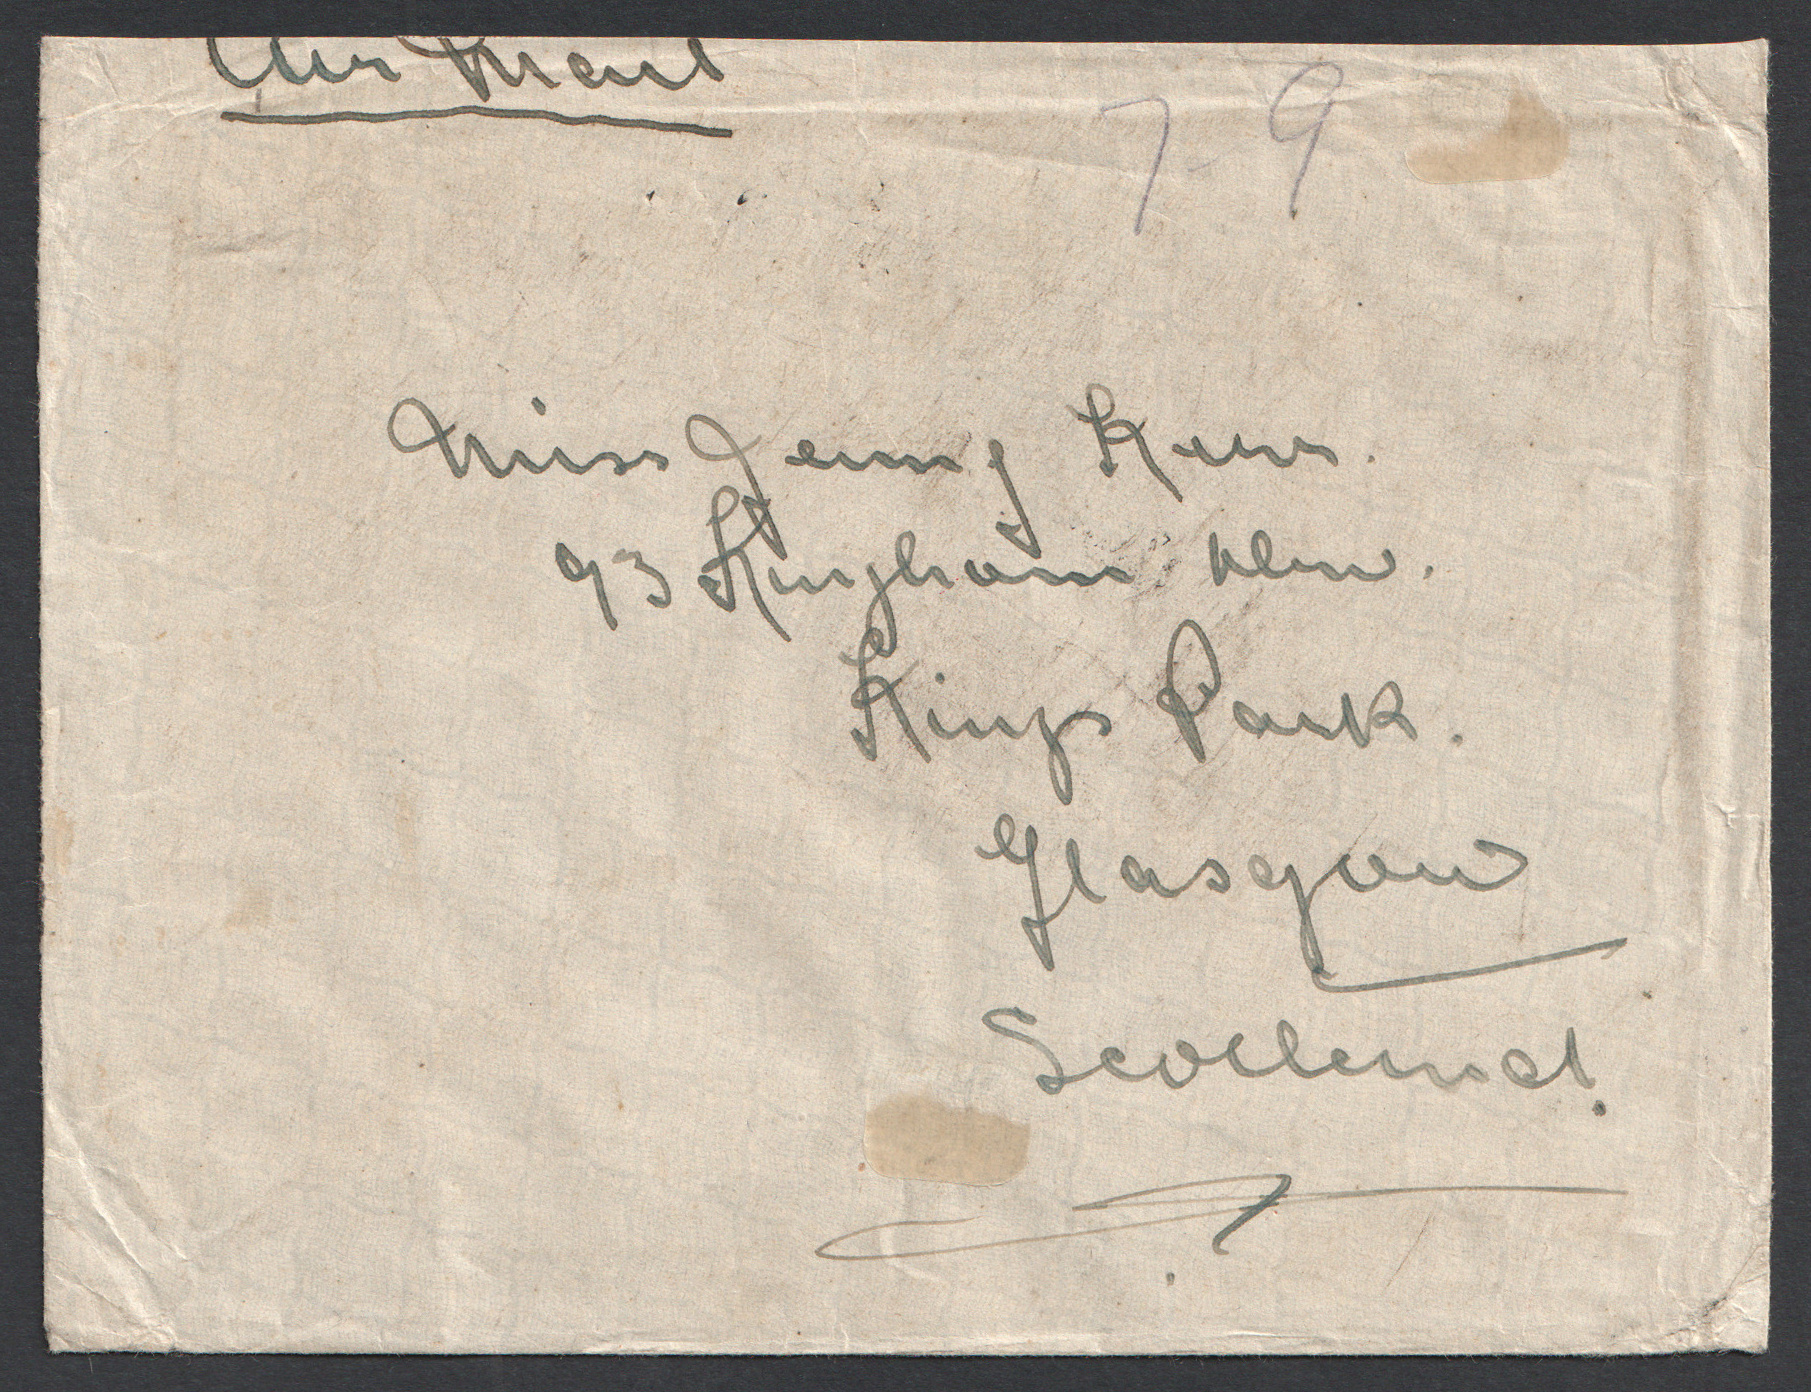 Air Mail
7-9
Miss Jenny Kerr.
93 Kingham
Kings Park.
Glasgow
Scotland.